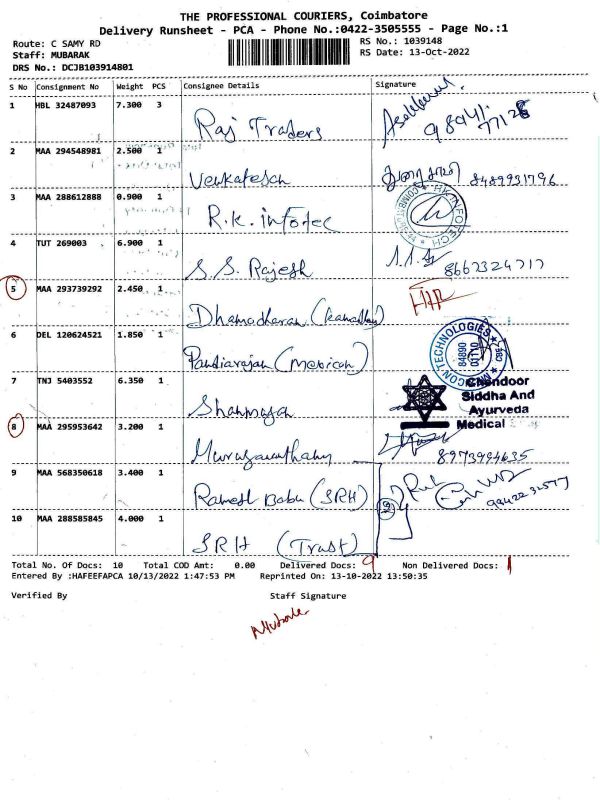 THE PROFESSIONAL COURIERS, Coimbatore
Delivery Runsheet - PCA - Phone No.:0422-3505555 - Page No.:1
Route: C SAMY RD
RS No.: 1039148
Staff: MUBARAK
RS Date: 13-Oct-2022
DRS No.: DCJB103914801
S No Consignment No Weight PCS Consignee Details Signature
1 HBL 32487093 7.300 3
Raj Traders
2 MAA 294548981 2.500 1
Venkatesh 8489931796
3 MAA 288612888 0.900 1
R.K. infotec
4 TUT 269003 6.900 1
S.S. Rajesh 8667324717
5 MAA 293739292 2.450 1
Dhamodharan
6 DEL 120624521 1.850 1
Pandiarajan (Mexican)
CON TECHNOLOGIES
7 TNJ 5403552 6.350 1
Shanmugan
Siddha And
Ayurveda
Medical
8 MAA 295953642 3.200 1
8973994635
9 MAA 568350618 3.400 1
Ramesh Babu (SRH)
10 MAA 288585845 4.000 1
SRH (Trust)
Total No. Of Docs: 10 Total COD Amt: 0.00 Delivered Docs: 9 Non Delivered Docs: 1
Entered By :HAFEEFAPCA 10/13/2022 1:47:53 PM Reprinted On: 13-10-2022 13:50:35
Verified By Staff Signature